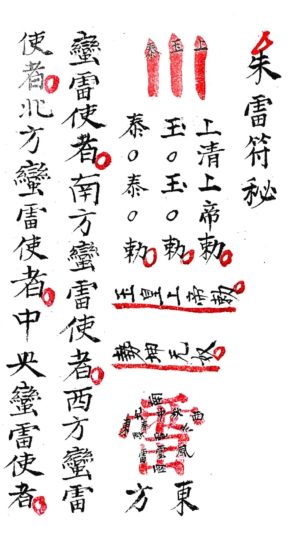 朱雷符秘
上
玉
泰
上清上帝勅
玉○玉○勅
泰○泰○勅
玉皇上帝勅
雷
東方
蠻雷使者南方蠻雷使者西方蠻雷
使者北方蠻雷使者中央蠻雷使者